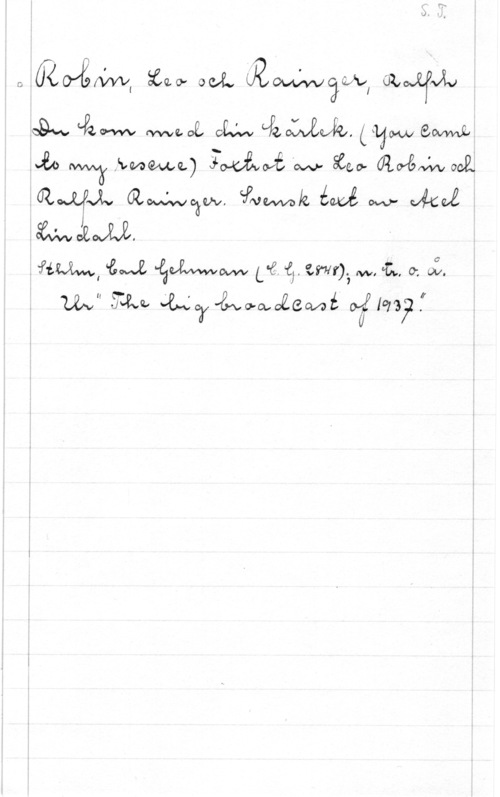 S. T.
Robin, Leo och Rainger, Ralph
Du kom med din kärlek. (You came
to my rescue) Foxtrot av Leo Robin och
Ralph Rainger. Svensk text av Axel
Lindahl.
Sthlm, Carl Gehrman (C. G. 2848); n. tr. o. å.
Ur "The big broadcast of 1937."